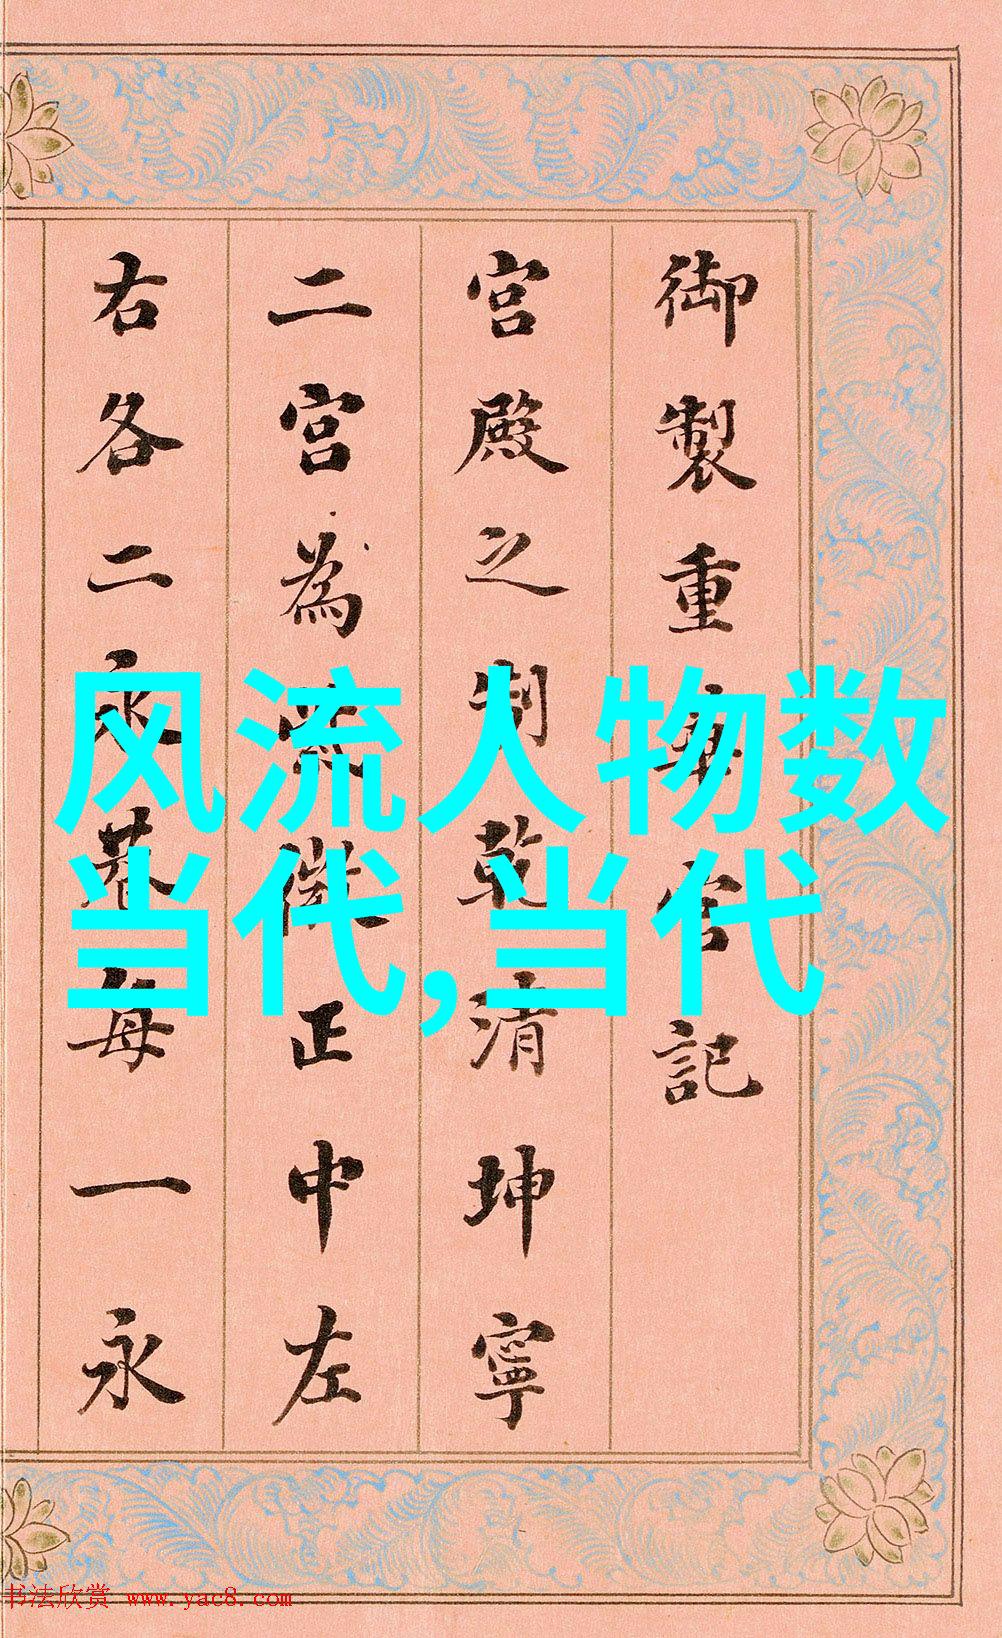 御製重華宮記
宮殿之制乾清坤寧
二宮為紫微正中左
右各二永巷每一永
风流人物数
当代,当代
书法欣赏 www.yac8.com